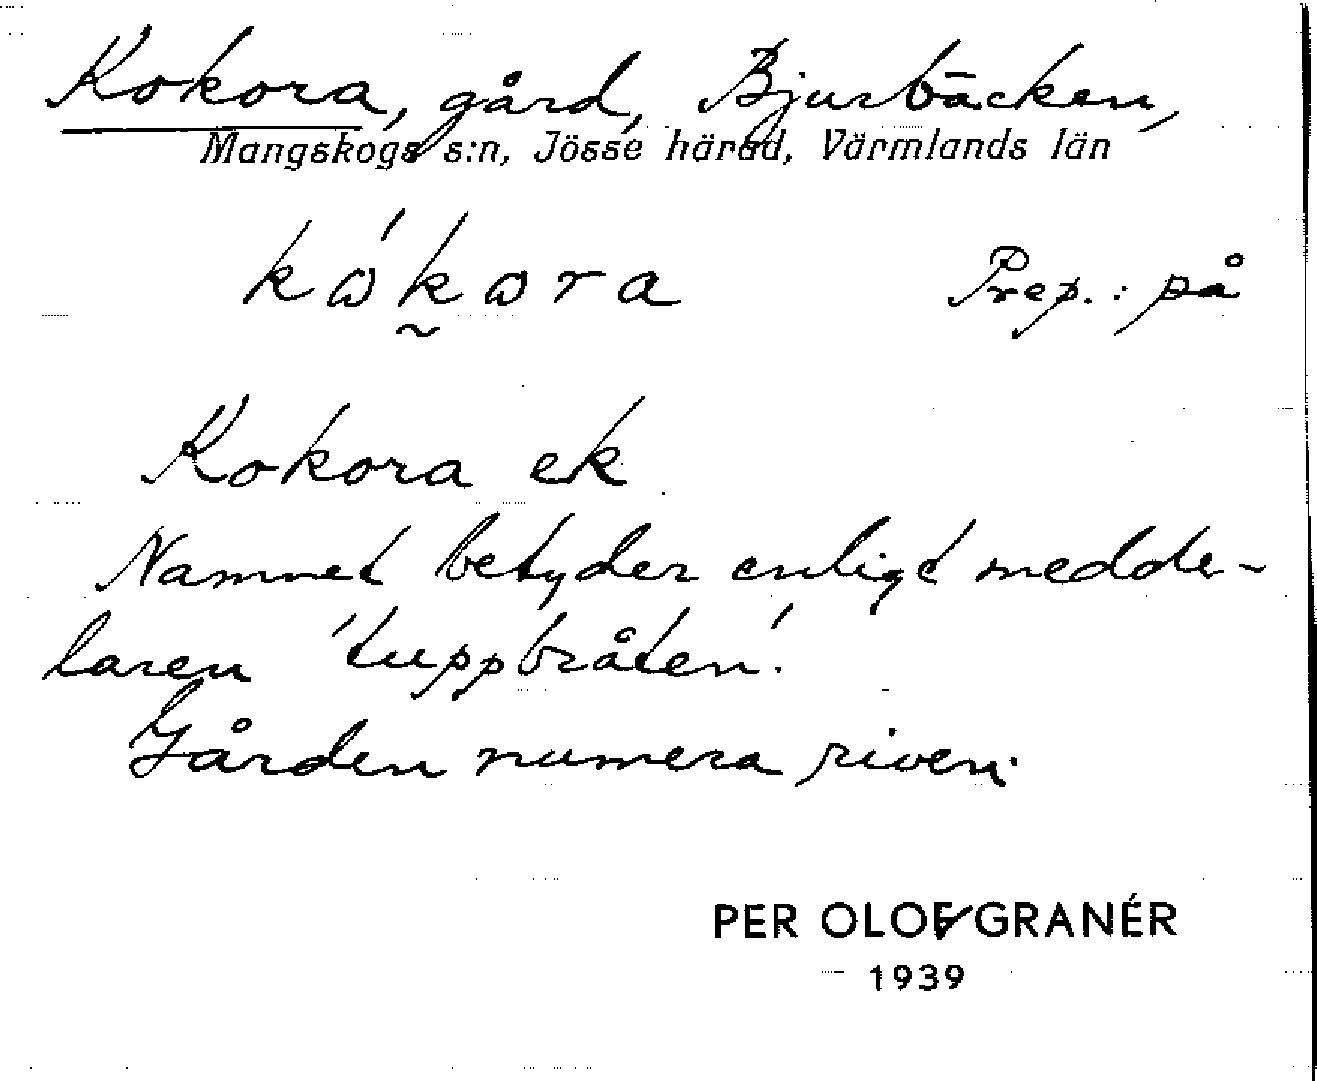 Kokora, gård, Bjurbäcken,
Mangskogs s:n, Jösse härad, Värmlands län
kɷ́k̰ɷra Prep.: på
Kokora ek
Namnet betyder enligt medde-
laren 'tuppbråten'.
Gården numera riven.
PER OLOF GRANÉR
1939